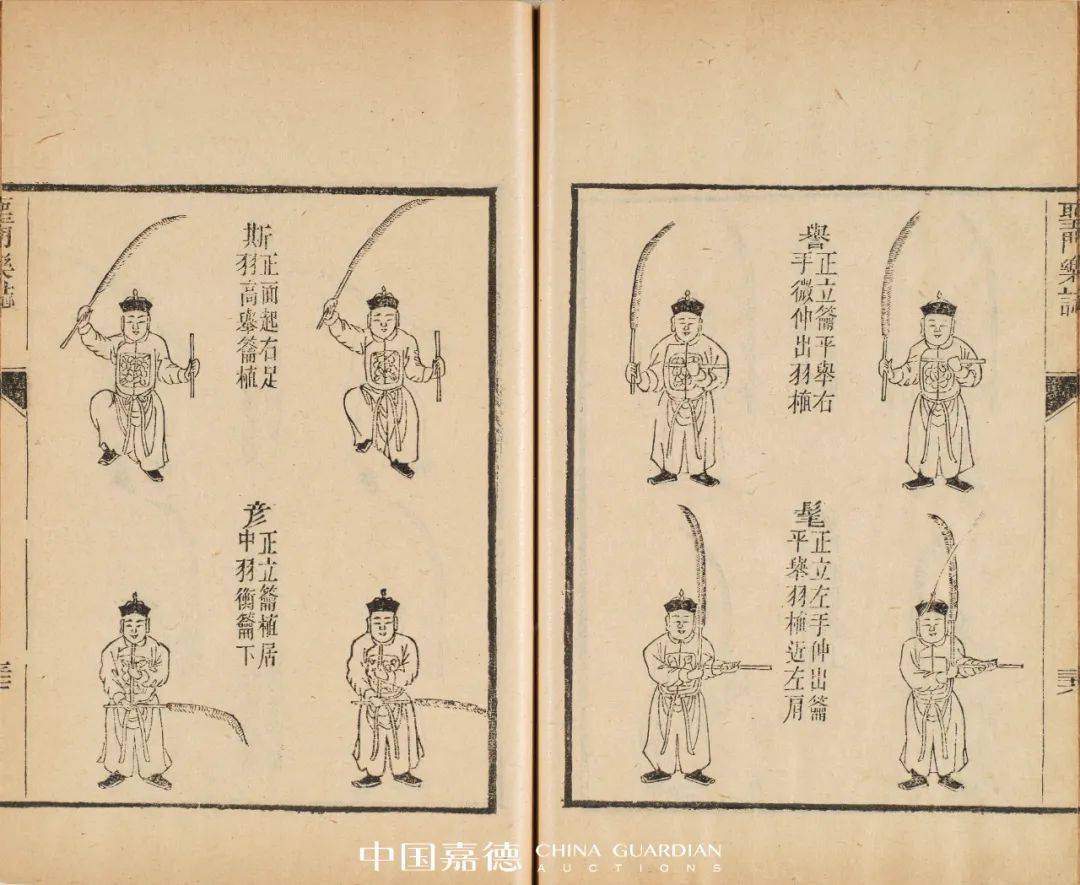 聖門樂誌
譽
正立籥平舉右
手微伸出羽植
髦
正立左手伸出籥
平舉羽植近左肩
斯
正面起右足
羽高舉籥植
彥
正立籥植居
中羽衡籥下
聖門樂誌
中国嘉德 CHINA GUARDIAN
AUCTIONS